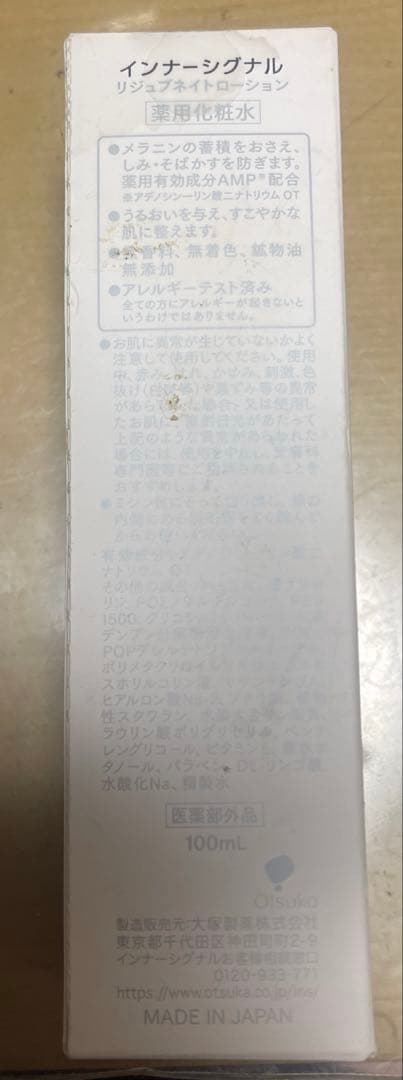 インナーシグナル
リジュブネイトローション
薬用化粧水
●メラニンの蓄積をおさえ、
しみ・そばかすを防ぎます。
薬用有効成分AMP®配合
※アデノシン一リン酸二ナトリウム OT
●うるおいを与え、すこやかな
肌に整えます。
香料、無着色、鉱物油
無添加
●アレルギーテスト済み
全ての方にアレルギーが起きないと
いうわけではありません。
●お肌に異常が生じていないかよく
注意して使用してください。使用
中、赤み、はれ、かゆみ、刺激、色
抜け(白斑等)や黒ずみ等の異常
があらわれた場合、又は使用し
たお肌に、直射日光があたって
上記のような異常があらわれた
場合には、使用を中止し、皮膚科
専門医等にご相談されることを
おすすめします。
●ミシン目にそって切り離し、箱の
ナトリウム
その他の成分
1500、グリコシ
デンプン
POPデシル
ポリメタクリロイル
スホリルコリン液
ヒアルロン酸Na
性スクワラン、
ラウリン酸ポリグリセリル、ペンチ
レングリコール、ビタミンE、無水エ
タノール、パラベン、DL-リンゴ酸、
水酸化Na、精製水
医薬部外品
100mL
Otsuka
製造販売元:大塚製薬株式会社
東京都千代田区神田司町2-9
インナーシグナルお客様相談窓口
0120-933-771
https://www.otsuka.co.jp/ins/
MADE IN JAPAN